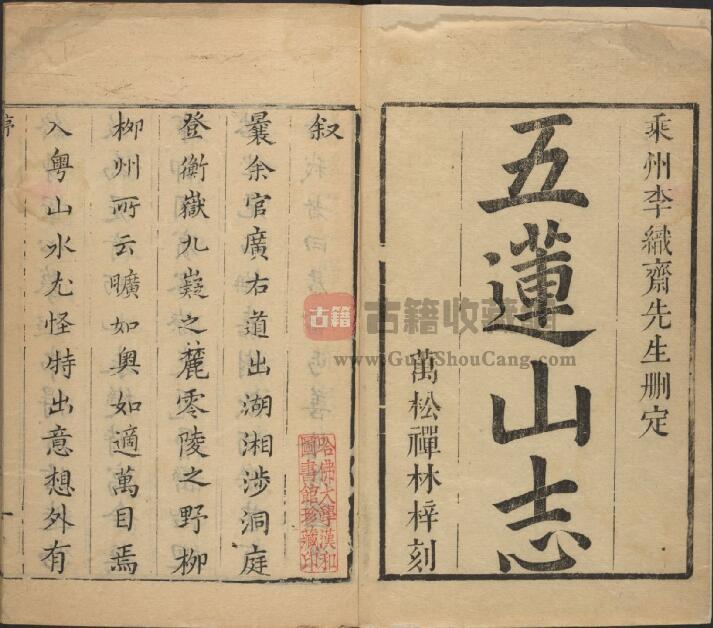 乘州李織齋先生删定
五蓮山志
萬松禪林梓刻
叙
曩余官廣右道出湖湘涉洞庭
登衡嶽九嶷之麓零陵之野柳
柳州所云曠如奥如適萬目焉
入粤山水尤怪特出意想外有
序
一
哈佛大學漢和
圖書館珍藏印
古籍
古籍收藏
www.GuJiShouCang.com